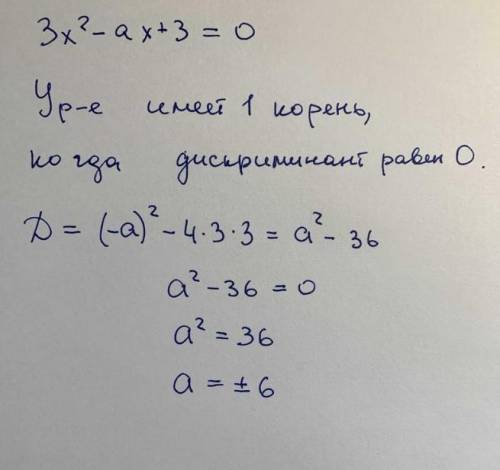 3x² - ax + 3 = 0
Ур-е имеет 1 корень,
когда дискриминант равен 0.
D = (-a)² - 4·3·3 = a² - 36
a² - 36 = 0
a² = 36
a = ± 6